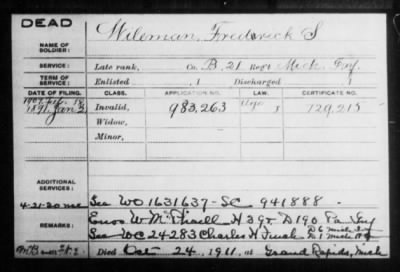 DEAD
Wileman, Frederick S
NAME OF SOLDIER:
SERVICE: Late rank, Co. B, 21 Reg't Mich. Inf.
TERM OF SERVICE: Enlisted , 1 Discharged , 1
DATE OF FILING. CLASS. APPLICATION NO. LAW. CERTIFICATE NO.
1891. Jan 2 Invalid, 983,263 729,215
Widow,
Minor,
ADDITIONAL SERVICES:
4-21-20 See WO 1631637 - SC 941888
REMARKS: Enos W. H 39 D 190 Pa Inf
See WC 24283 Charles H
Died Oct 24, 1911, at Grand Rapids, Mich